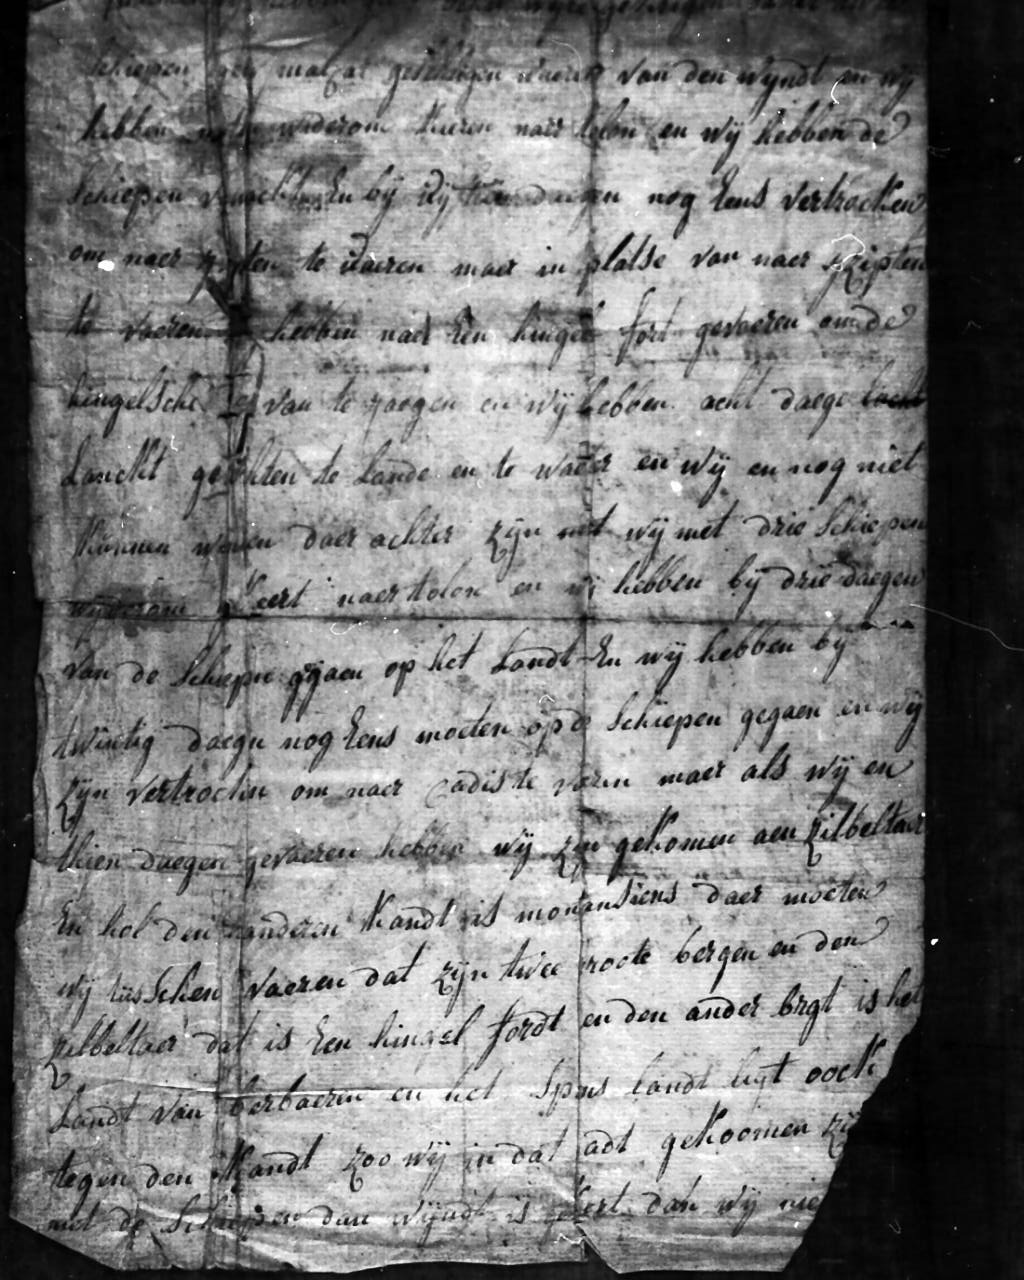 schiepen mal van den wyndt en wij
hebben wederom Keeren naer tolon en wij hebben de
Schiepen en bij vijf daegen nog Eens vertrocken
om naer te vaeren maer in platse van naer Ezipten
te vaeren hebben naer Een hingels fort gevaeren om de
hingelsche van te jaegen en wij hebben acht daege
Lanckt gevochten te Lande en te waeter en wij en nog niet
Kunnen daer achter zijn met wij met drie Schiepen
wederom Keert naer tolon en wij hebben bij drie daegen
van de Schiepn ggaen op het Landt En wij hebben bij
twintig daegn nog Eens moeten op de Schiepen gegaen en wij
zijn vertrockn om naer Cadis te varen maer als wij en
thien daegen gevaeren hebben wij zijn gekomen aen Zilbeltaer
En het den anderen Kandt is daer moeten
wij tusschen vaeren dat zijn twee groote bergen en den
Zilbeltaer dat is Een hingel fordt en den ander brgt is het
Landt van berbaeren en het Spns landt ligt oock
tegen den Kandt Zoo wij in dat adt gekoomen zij
met de Schiepen dan wijndt is gekert dat wij nie